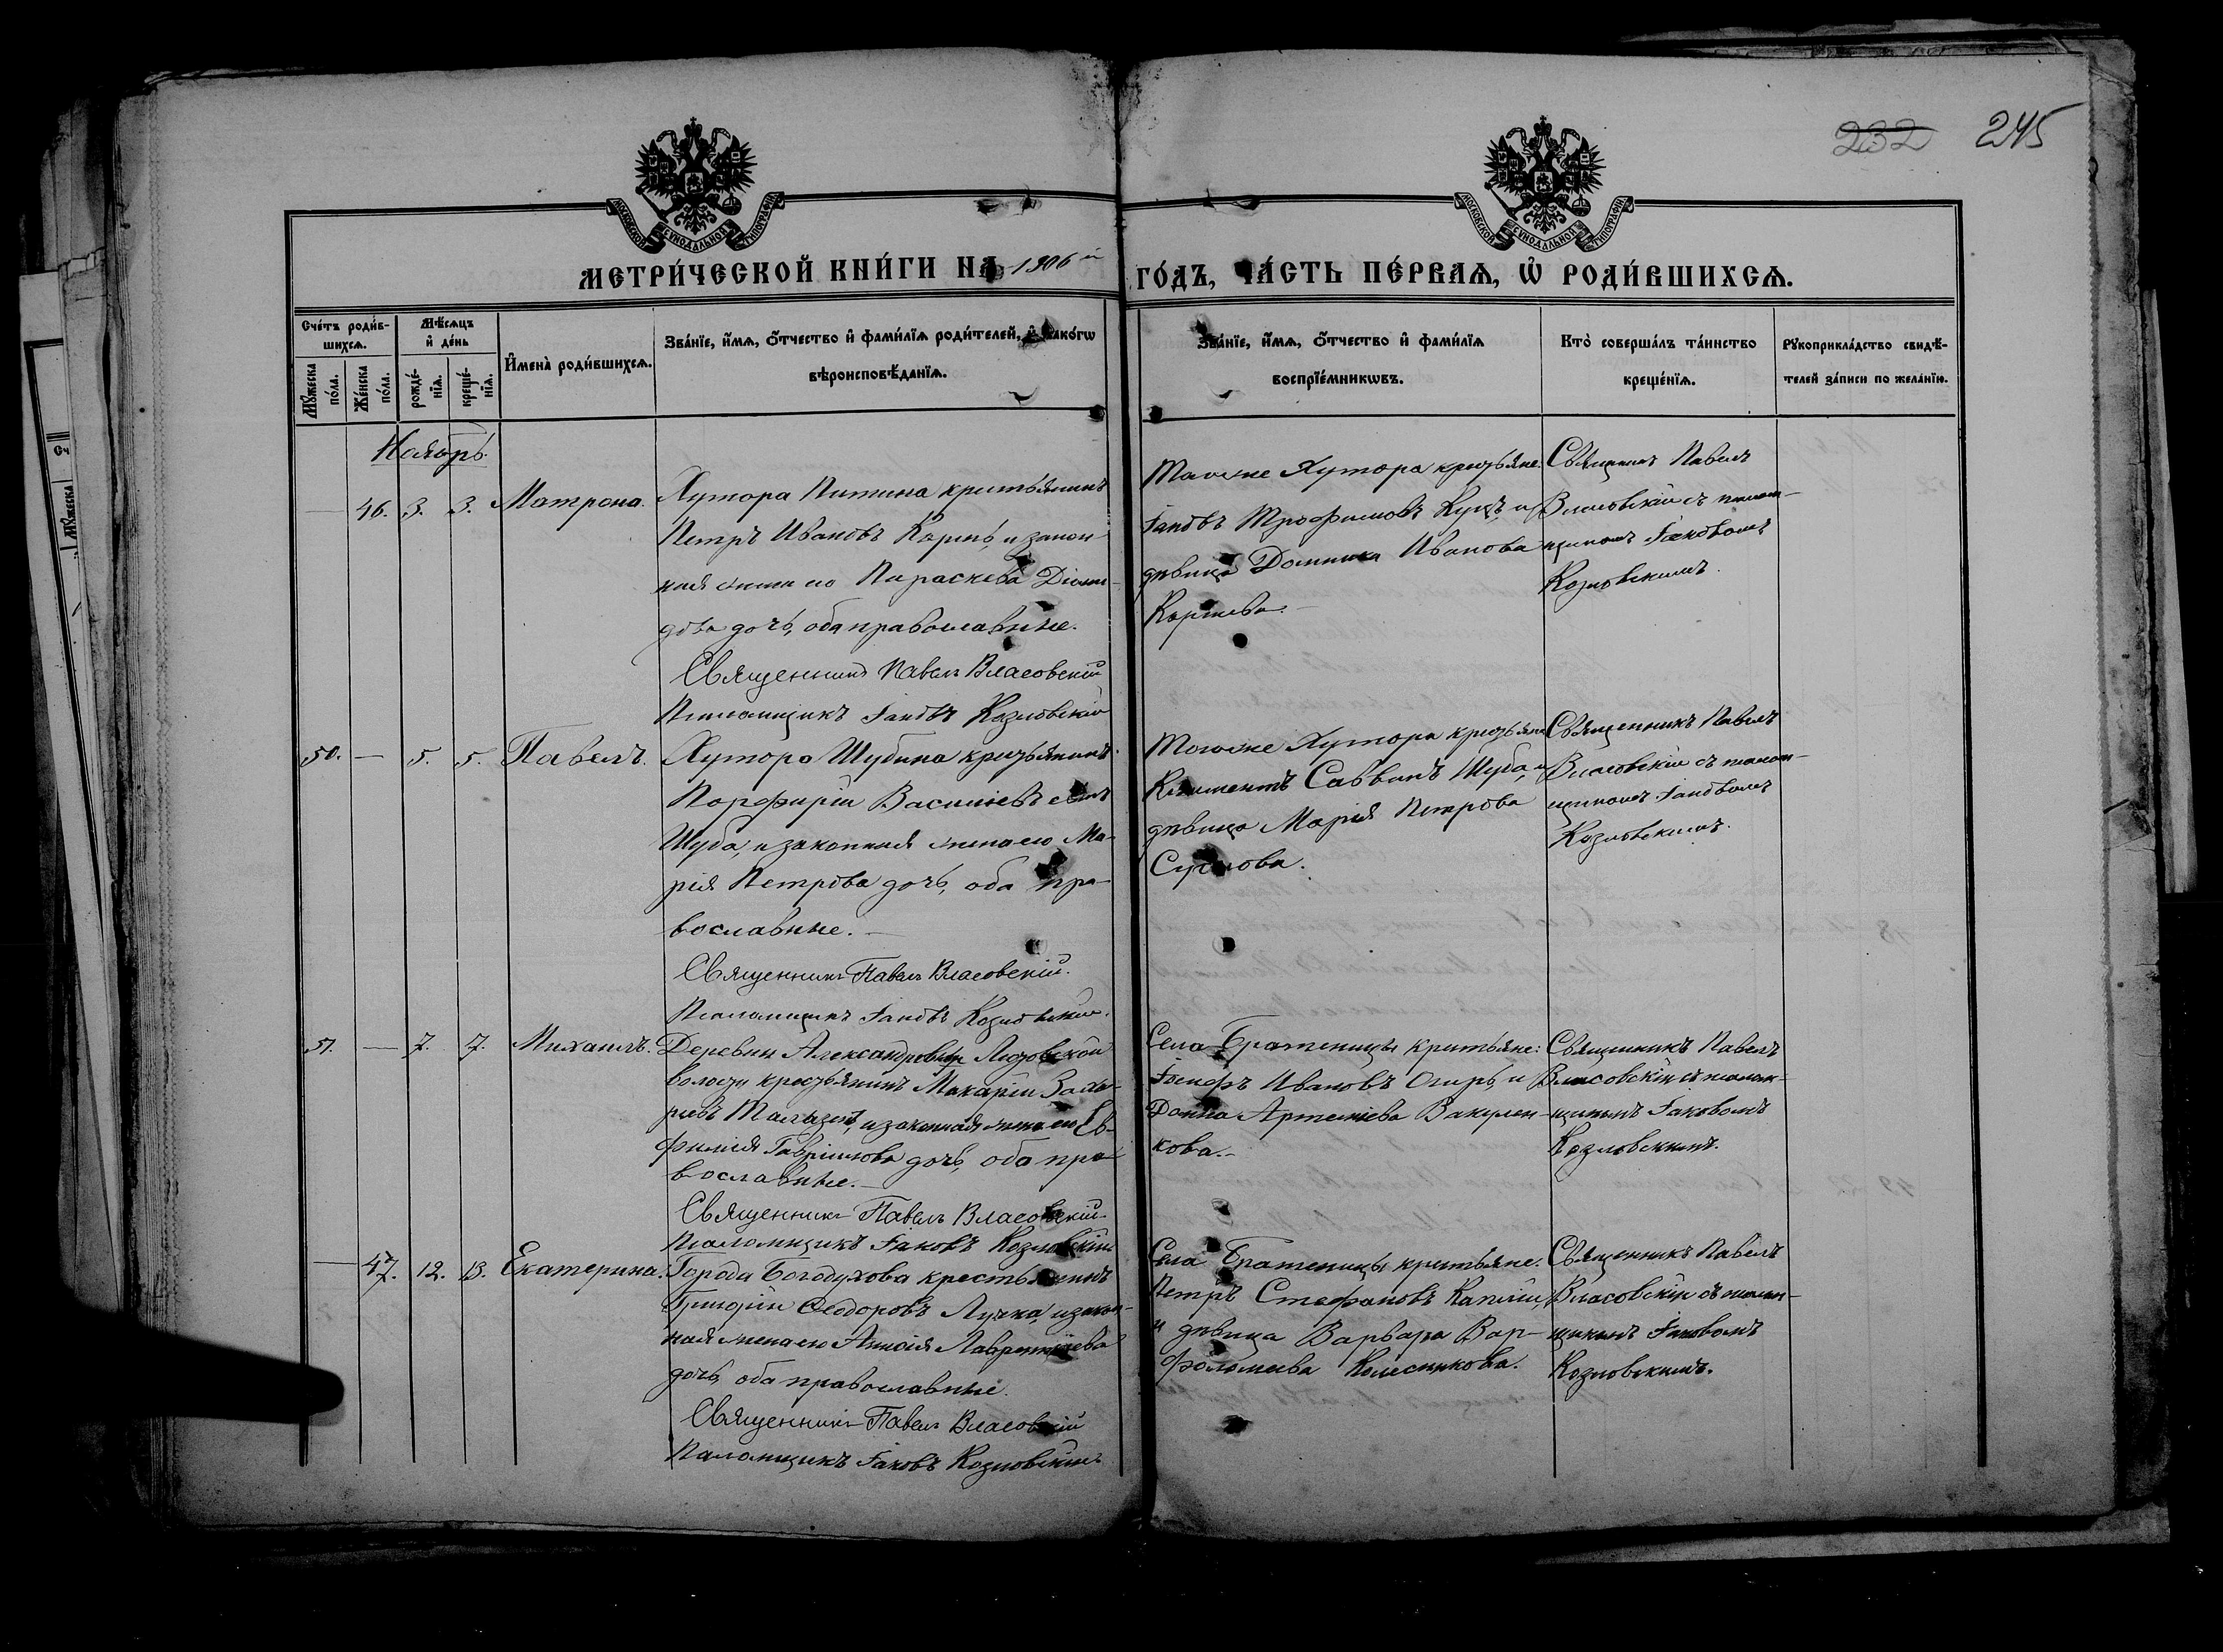 232 245
МОСКОВСКОЙ СѴНОДАЛЬНОЙ ТИПОГРАФІИ
МОСКОВСКОЙ СѴНОДАЛЬНОЙ ТИПОГРАФІИ
МЕТРИ́ЧЕСКОЙ КНИ́ГИ НА 1906 й ГО́ДЪ, ЧА́СТЬ ПЕ́РВАѦ, Ѡ҆ РОДИ́ВШИХСѦ.
Сче́тъ роди́в-
шихсѧ.
Мѹ́жеска по́ла.
Же́нска по́ла.
Мѣ́сѧцъ и҆ де́нь
рожде́-нїѧ.
креще́-нїѧ.
И҆мена̀ роди́вшихсѧ.
Зва́нїе, и҆́мѧ, ѻ҆́тчество и҆ фами́лїѧ роди́телей, и҆ како́гѡ
вѣроисповѣ́данїѧ.
Зва́нїе, и҆́мѧ, ѻ҆́тчество и҆ фами́лїѧ
воспрїе́мникѡвъ.
Кто̀ соверша́лъ та́инство
креще́нїѧ.
Рꙋкоприкла́дство свидѣ́-
телей за́писи по жела́нїю.
Ноябрь.
— 46. 3. 3. Матрона.
Хутора Питина крестьянинъ
Петръ Ивановъ Корень, и закон-
ная жена его Параскева
дова дочь, оба православные.
Священникъ Павелъ Власовскій
Псаломщикъ Іаковъ Козловскій
Тогоже Хутора крестьяне:
Іаковъ Трофимовъ Куцъ, и
дѣвица Домника Иванова
Корнева.—
Священникъ Павелъ
Власовскій съ псалом-
щикомъ Іаковомъ
Козловскимъ.
50. — 5. 5. Павелъ.
Хутора Шубина крестьянинъ
Порфирій Васильевъ сынъ
Шуба, и законная жена его Ма-
рія Петрова дочь, оба пра-
вославные.—
Священникъ Павелъ Власовскій.
Псаломщикъ Іаковъ Козловскій.
Тогоже Хутора крестьяне
Климентъ Саввинъ Шуба, и
дѣвица Марія Петрова
Священникъ Павелъ
Власовскій съ псалом-
щикомъ Іаковомъ
Козловскимъ.
51. — 7. 7. Михаилъ.
Деревни Александровки
волости крестьянинъ Макарій Заха-
ріевъ и законная жена его Ев-
фимія Гавріилова дочь, оба пра-
вославные.—
Священникъ Павелъ Власовскій
Псаломщикъ Іаковъ Козловскій
Села Братеницы крестьяне:
Іосифъ Ивановъ Огирь, и
Домна Артеміева Вакулен-
кова.—
Священникъ Павелъ
Власовскій съ псалом-
щикомъ Іаковомъ
Козловскимъ.
— 47. 12. 13. Екатерина.
Города Богодухова крестьянинъ
Григорій Ѳеодоровъ Лучка, и закон-
ная жена его Анисія Лаврентіева
дочь, оба православные.
Священникъ Павелъ Власовскій
Псаломщикъ Іаковъ Козловскій
Села Братеницы крестьяне:
Петръ Стефановъ
и дѣвица Варвара Вар-
фоломеева Колесникова.
Священникъ Павелъ
Власовскій съ псалом-
щикомъ Іаковомъ
Козловскимъ.